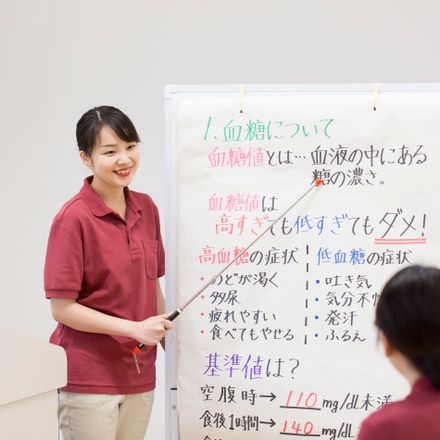 1. 血糖について
血糖値とは… 血液の中にある
糖の濃さ。
血糖値は
高すぎても低すぎてもダメ!
高血糖の症状 低血糖の症状
・のどが渇く ・吐き気
・多尿 ・気分不
・疲れやすい ・発汗
・食べてもやせる ・ふるえ
基準値は?
空腹時→110mg/dL未満
食後1時間→140mg/dL未